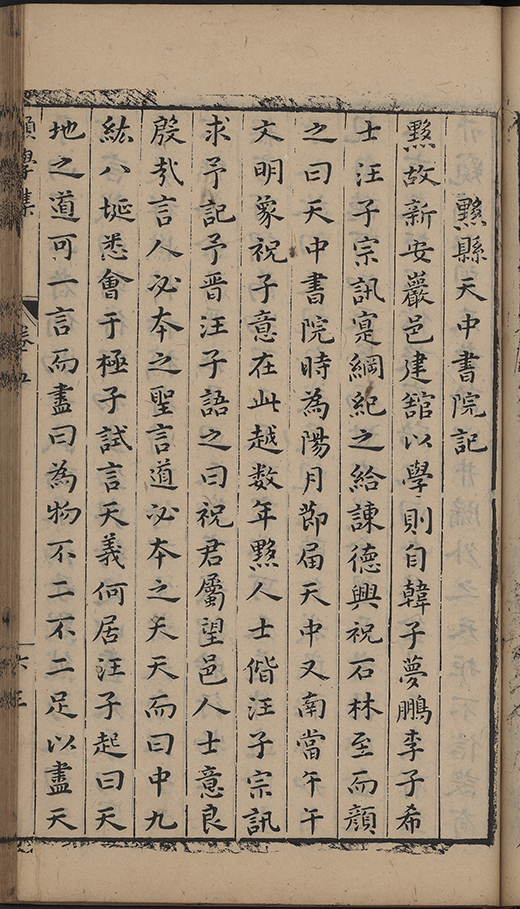 黟縣天中書院記
黟故新安巖邑建舘以學則自韓子夢鵬李子希
士汪子宗訊寔綱紀之給諫德興祝石林至而顏
之曰天中書院時為陽月節届天中又南當午午
文明象祝子意在此越数年黟人士偕汪子宗訊
求予記予晋汪子語之曰祝君屬望邑人士意良
殷㢤言人必本之聖言道必本之天天而曰中九
紘八埏悉會于極子試言天義何居汪子起曰天
地之道可一言而盡曰為物不二不二足以盡天
學集
卷十五